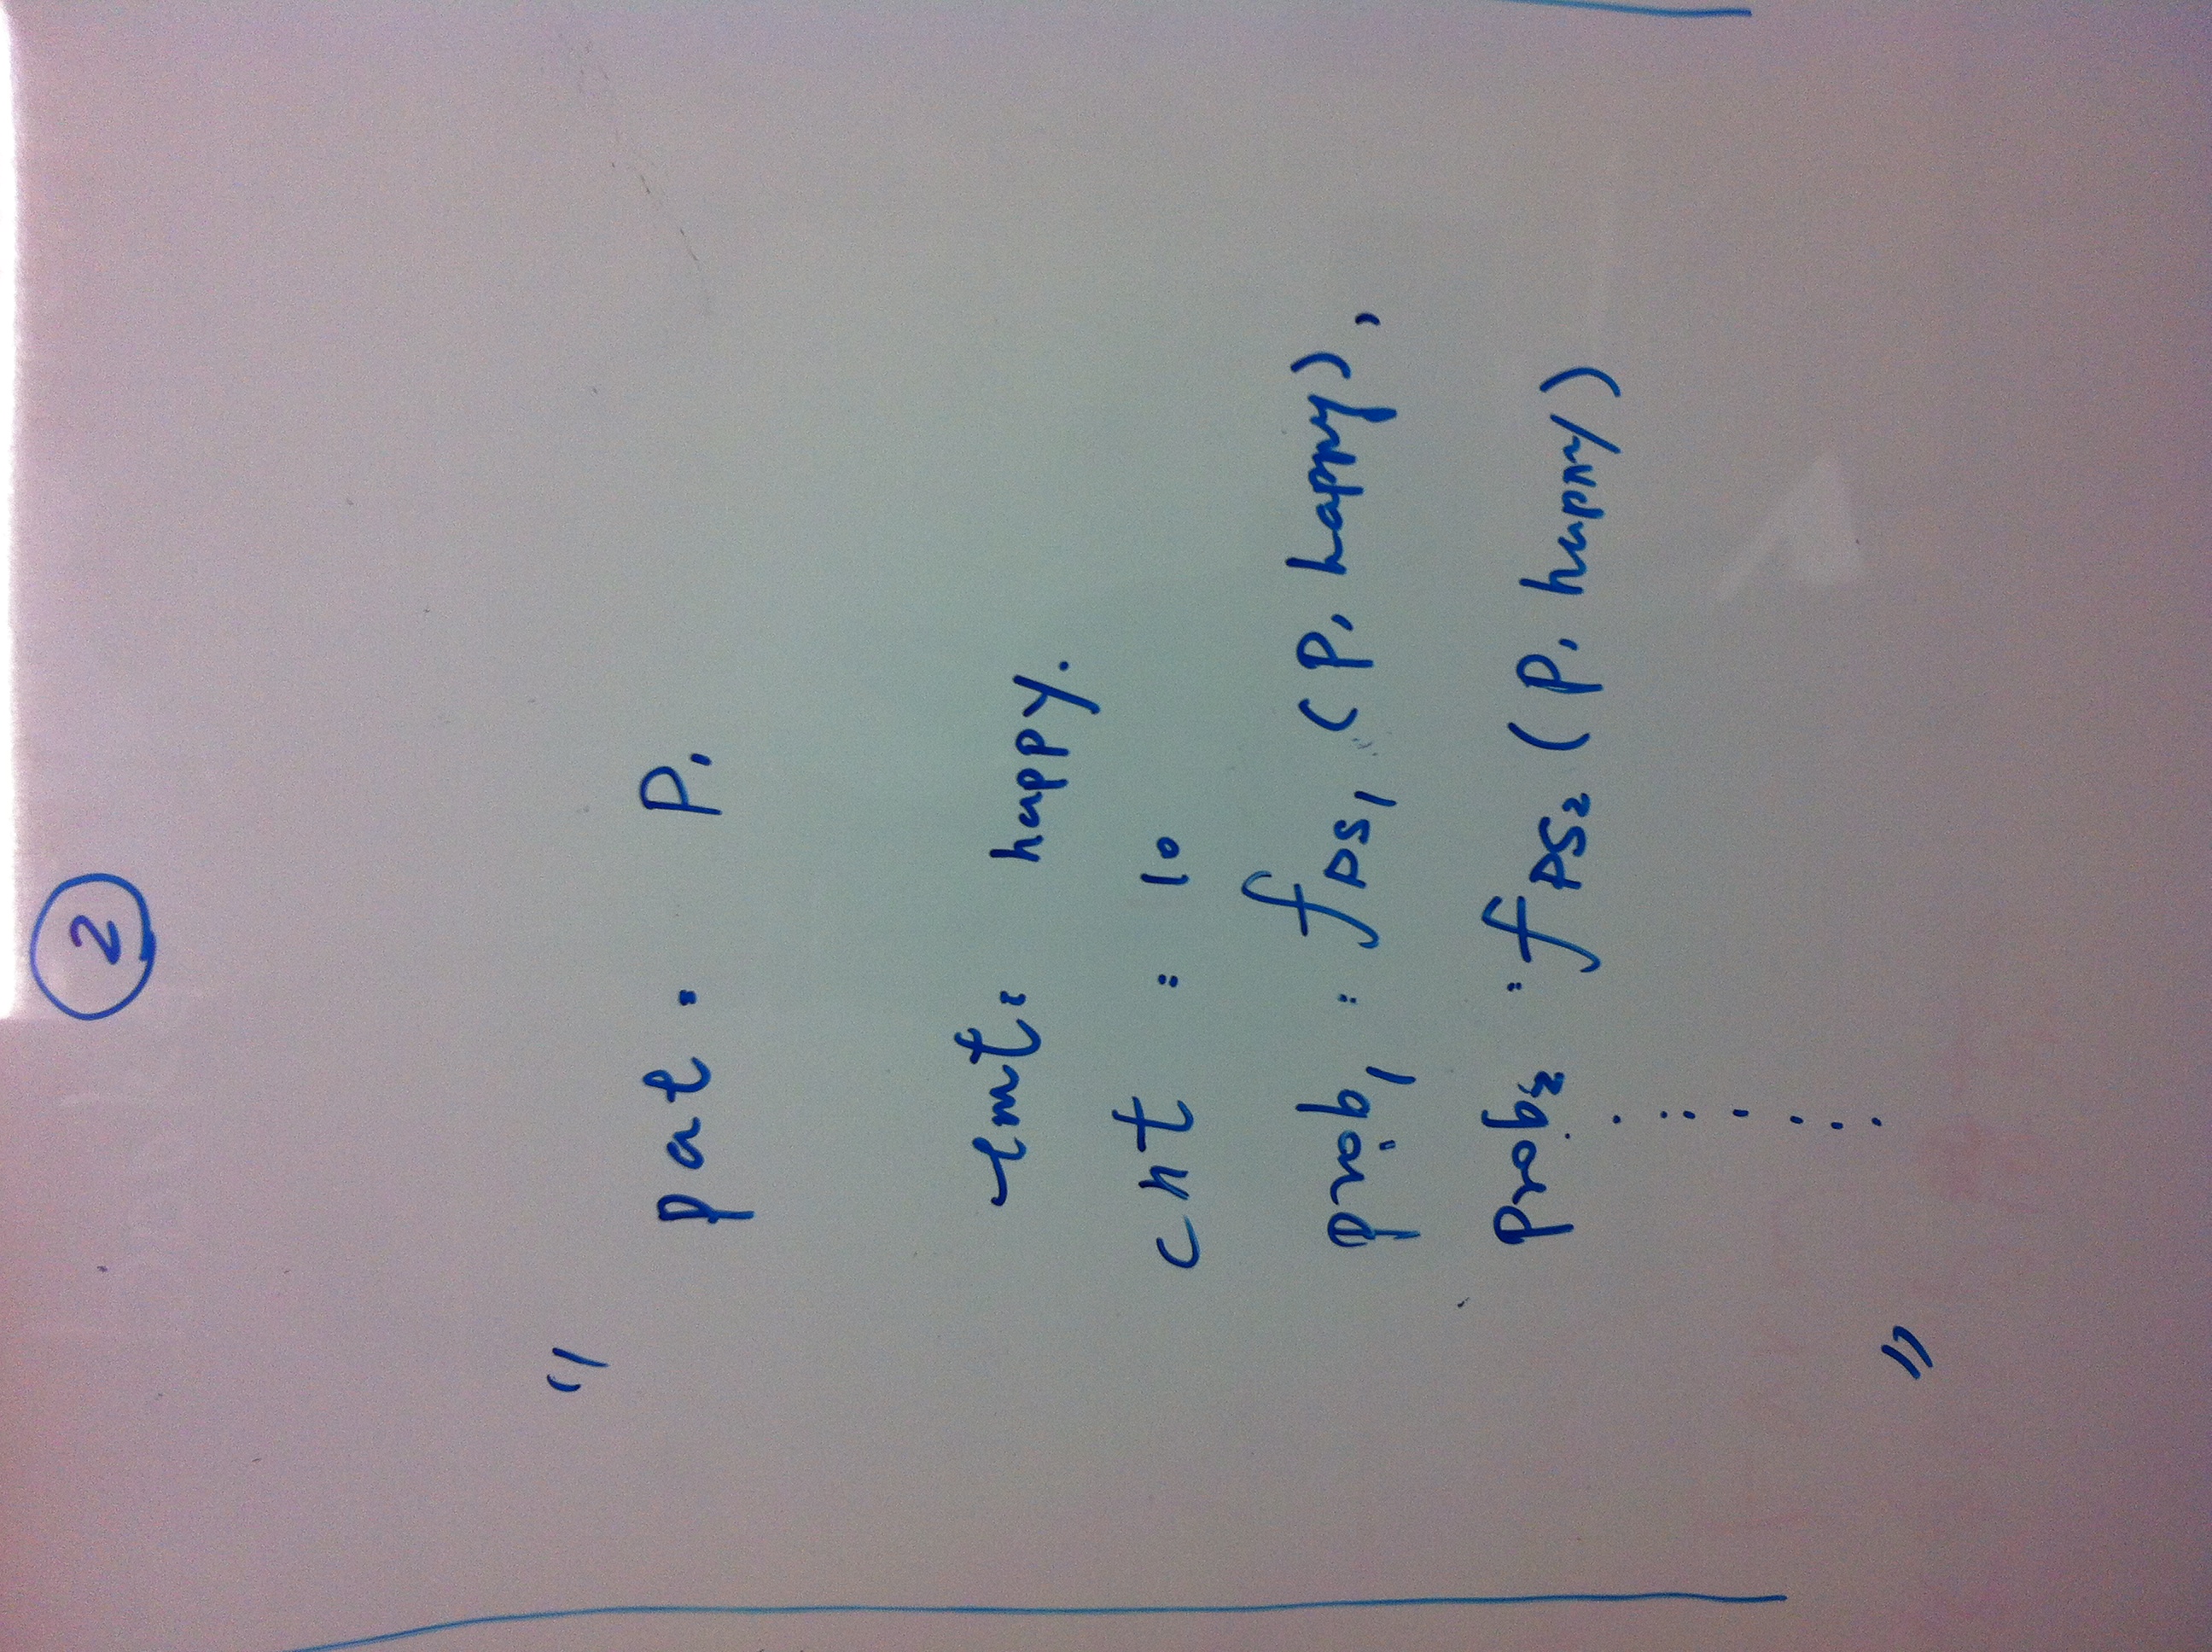 2
"
pat : P,
emt : happy.
cnt : 10
prob1 : fDS1 (P, happy),
prob2 : fDS2 (P, happy)
"